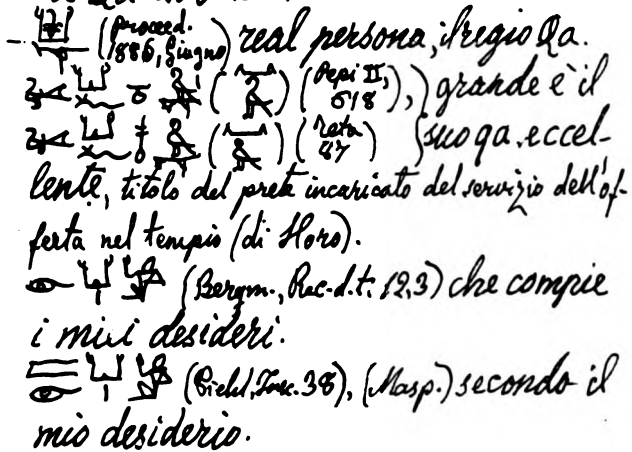 (Proceed. 1886, Giugno) real persona, il regio Qa.
(Pepi II, 618), grande è il
(Teta 87) suo qa, eccel-
lente, titolo del prete incaricato del servizio dell'of-
ferta nel tempio (di Horo).
(Bergm., Rec. d. t. 12,3) che compie
i miei desideri.
(Piehl, Insc. 38), (Masp.) secondo il
mio desiderio.